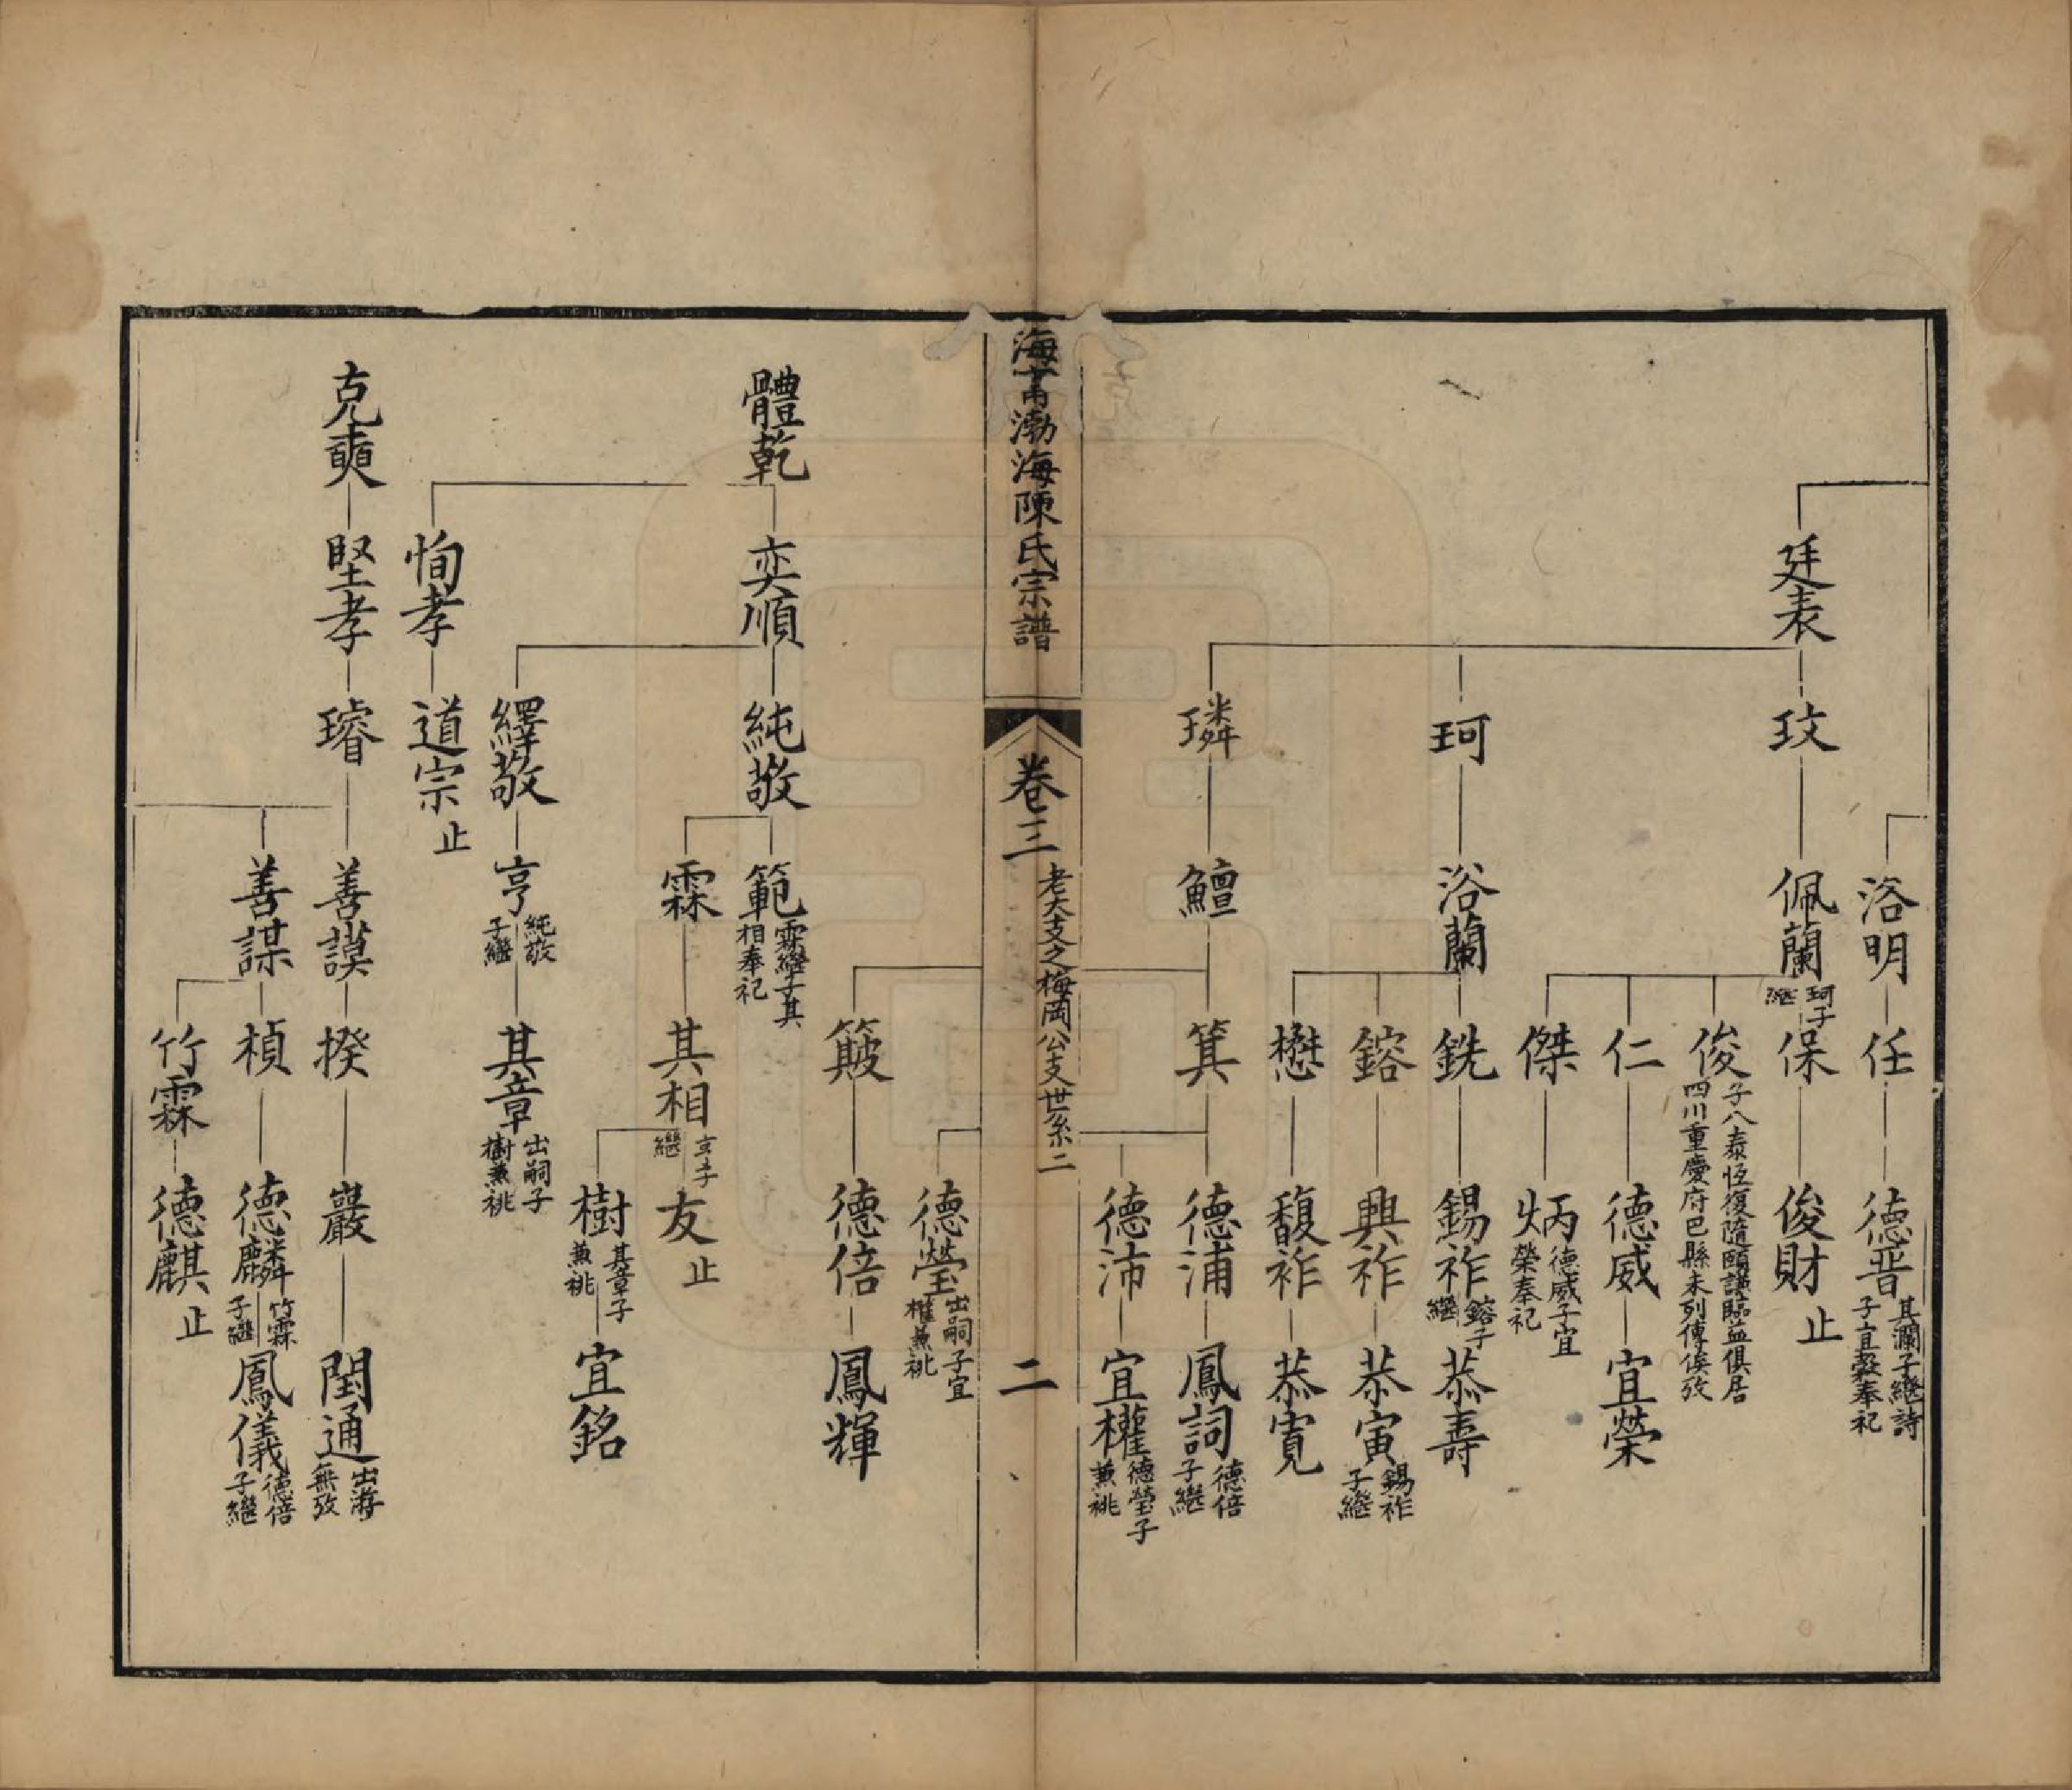 洛明
任
德晋
其瀾子繼詩
子宜穀奉祀
廷表
玟
佩蘭
珂子
繼
保
俊財
止
俊
子八泰恆復隨頤謙臨益俱居
四川重慶府巴縣未列傳俟攷
仁
德威
宜榮
傑
炳
德威子宜
榮奉祀
珂
浴蘭
銑
錫祚
鎔子
繼
恭壽
鎔
興祚
恭寅
錫祚
子繼
懋
馥祚
恭寬
璘
鱣
箕
德浦
鳳詞
德倍
子繼
德沛
宜權
德瑩子
兼祧
海甯渤海陳氏宗譜
卷三
老大支之梅岡公支世系二
二
德瑩
出嗣子宜
權兼祧
簸
德倍
鳳輝
體乾
奕順
純敬
範
霖繼子其
相奉祀
霖
其相
亨子
繼
友
止
樹
其章子
兼祧
宜銘
繹敬
亨
純敬
子繼
其章
出嗣子
樹兼祧
恂孝
道宗
止
克奭
堅孝
璿
善謨
揆
巖
閏通
出游
無攷
善謀
楨
德麟
竹霖
子繼
鳳儀
德倍
子繼
竹霖
德麒
止